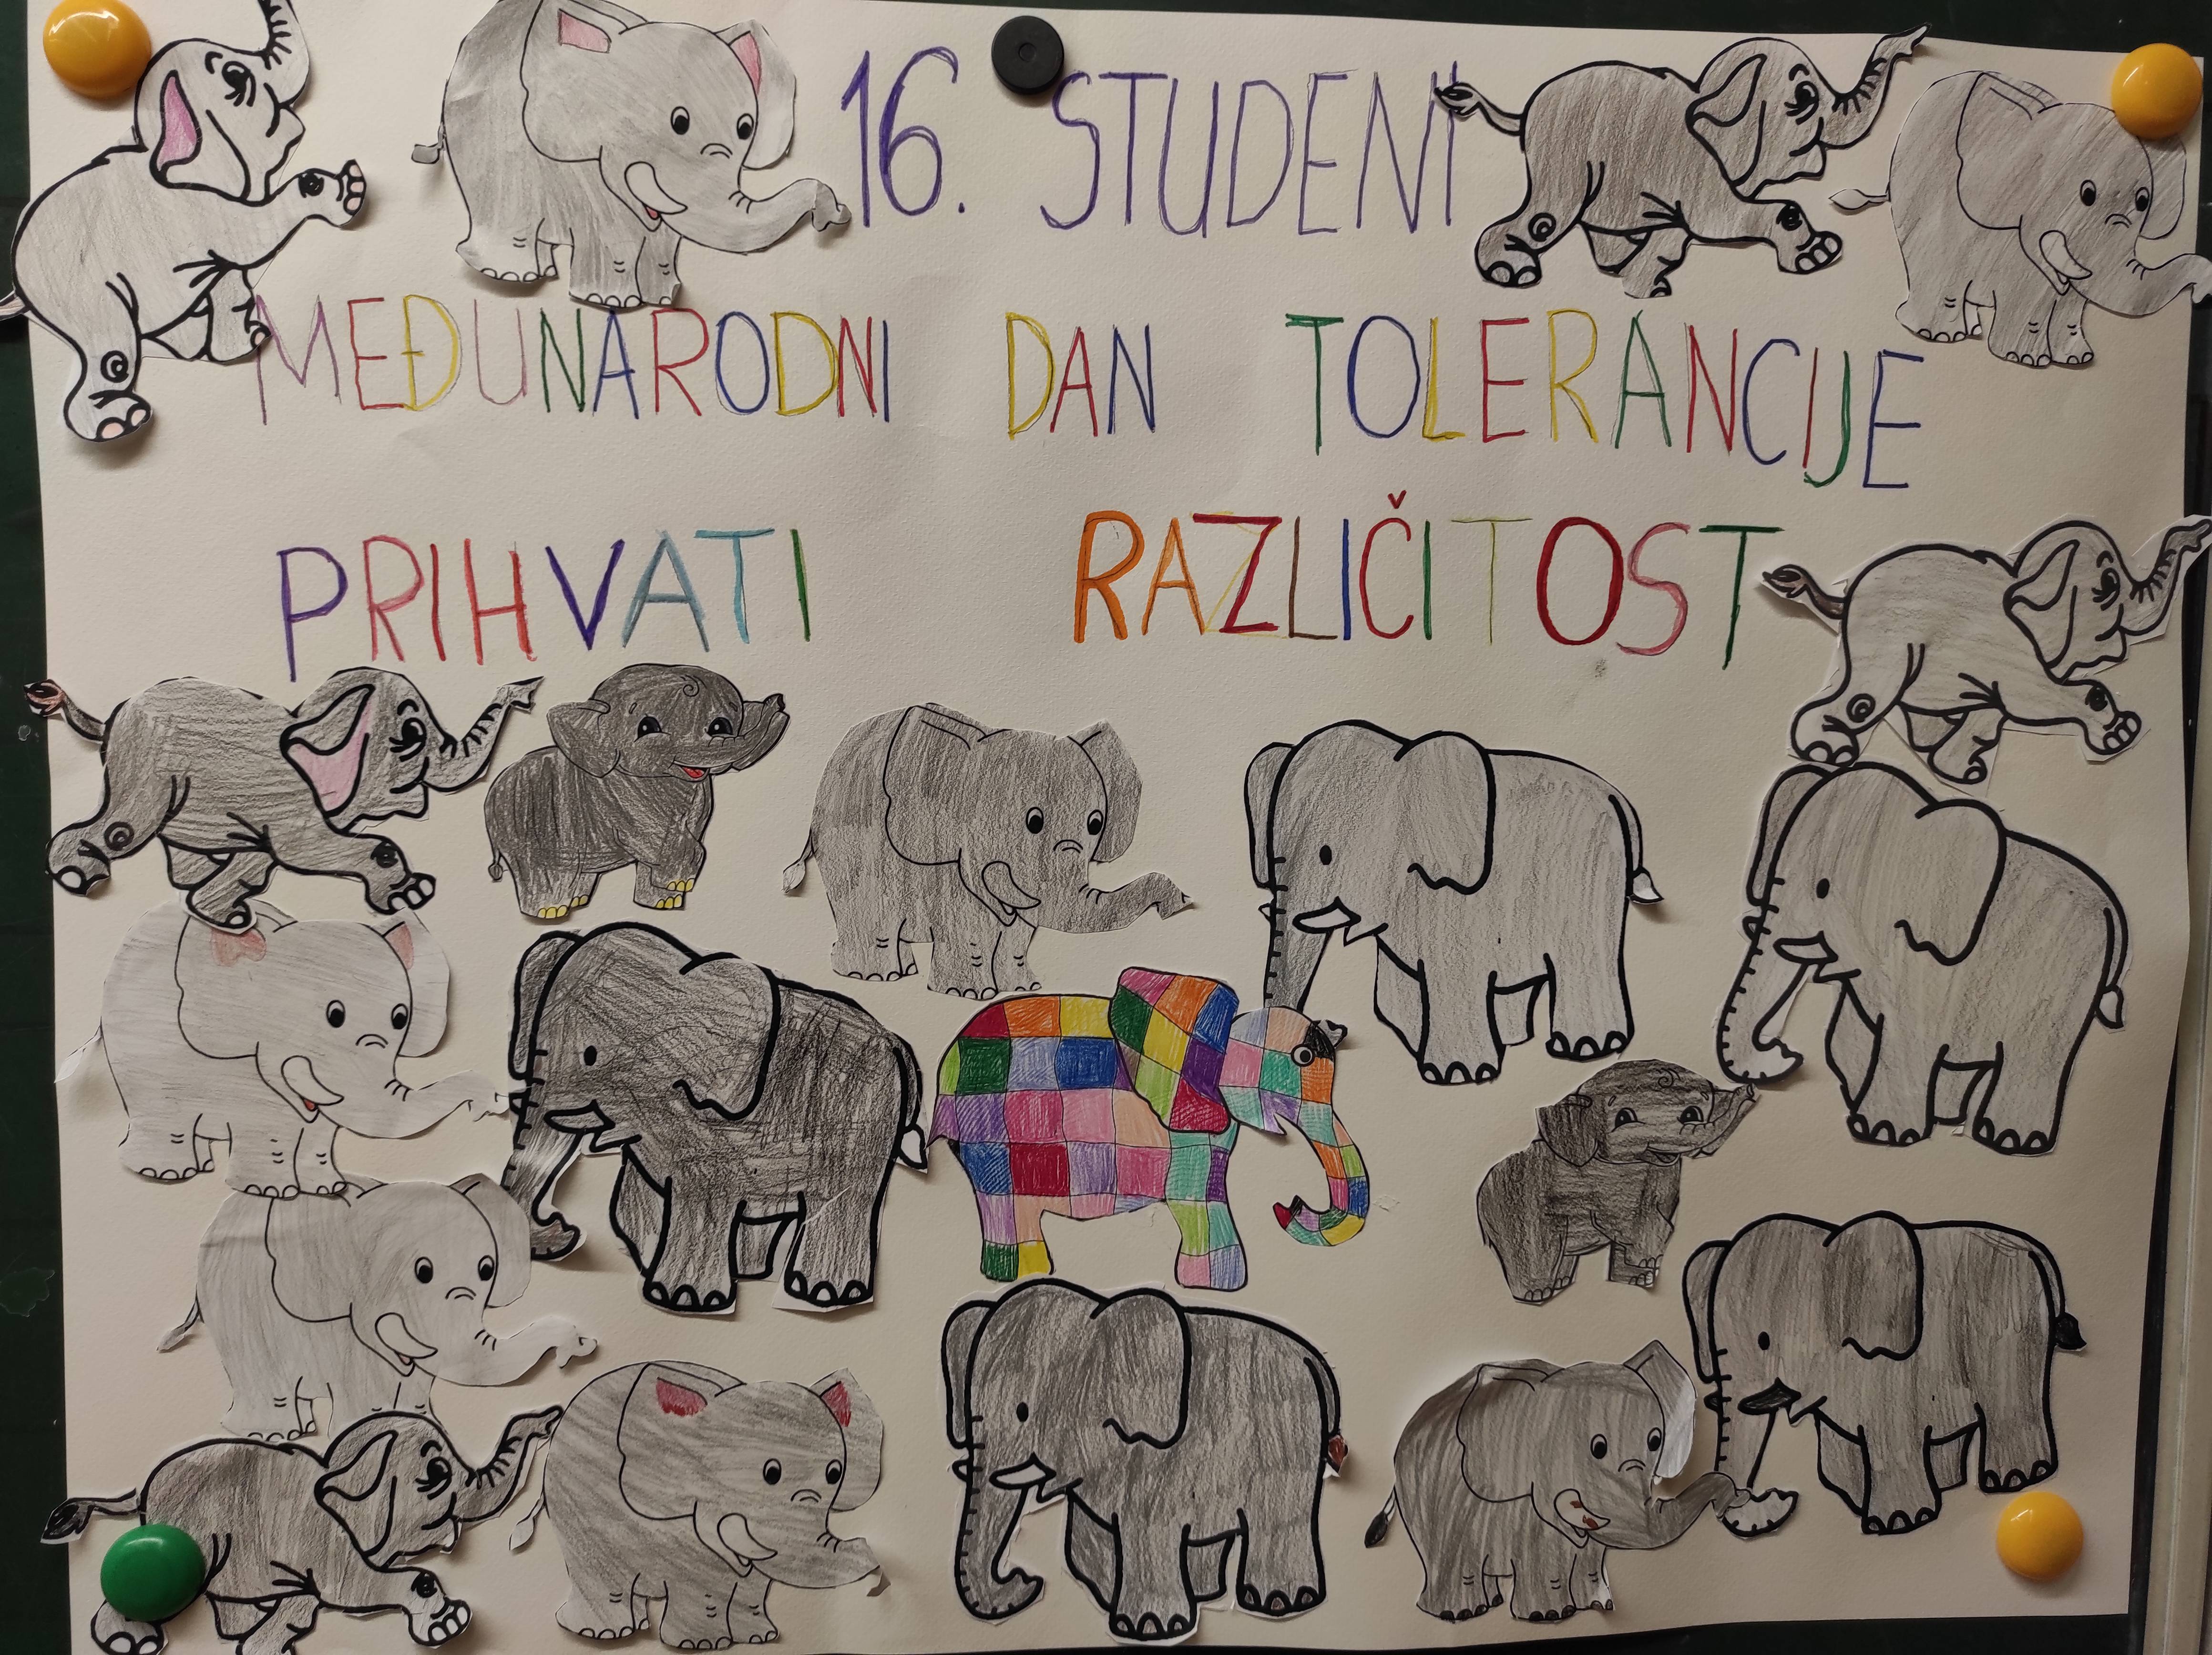 16. STUDENI
MEĐUNARODNI DAN TOLERANCIJE
PRIHVATI RAZLIČITOST